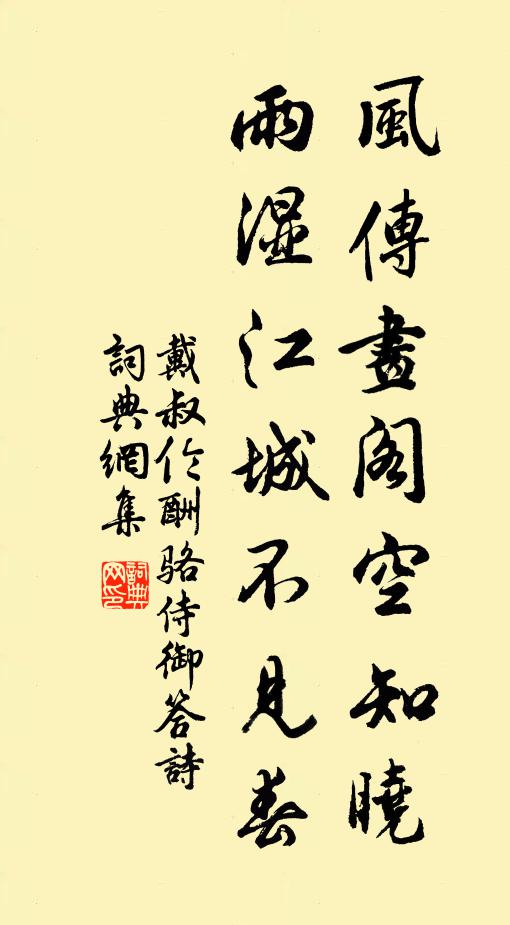 風傳畫閣空知曉
雨濕江城不見春
戴叔伦酬骆侍御答詩
詞典網集
詞典网印